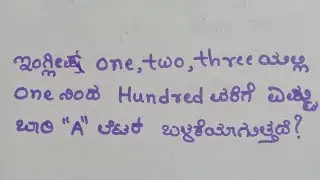 ಇಂಗ್ಲೀಷ್ one, two, three ಯಲ್ಲಿ
one ನಿಂದ Hundred ವರೆಗೆ ಎಷ್ಟು
ಬಾರಿ "A" ಲೆಟರ್ ಬಳಕೆಯಾಗುತ್ತದೆ?